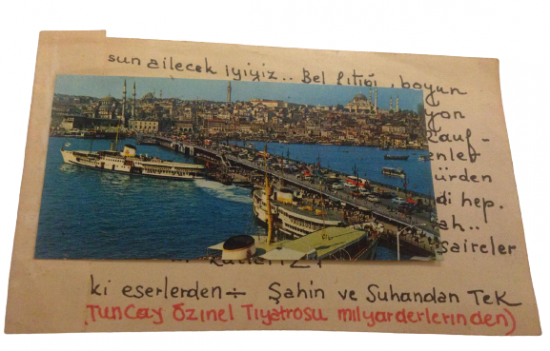 sun ailecek iyiyiz.. Bel fıtığı, boyun
yon
Lauf-
enlet
ürden
di hep.
ah..
saireler
ki eserlerden÷ Şahin ve Suhandan Tek
Tuncay Özinel Tiyatrosu milyarderlerinden)